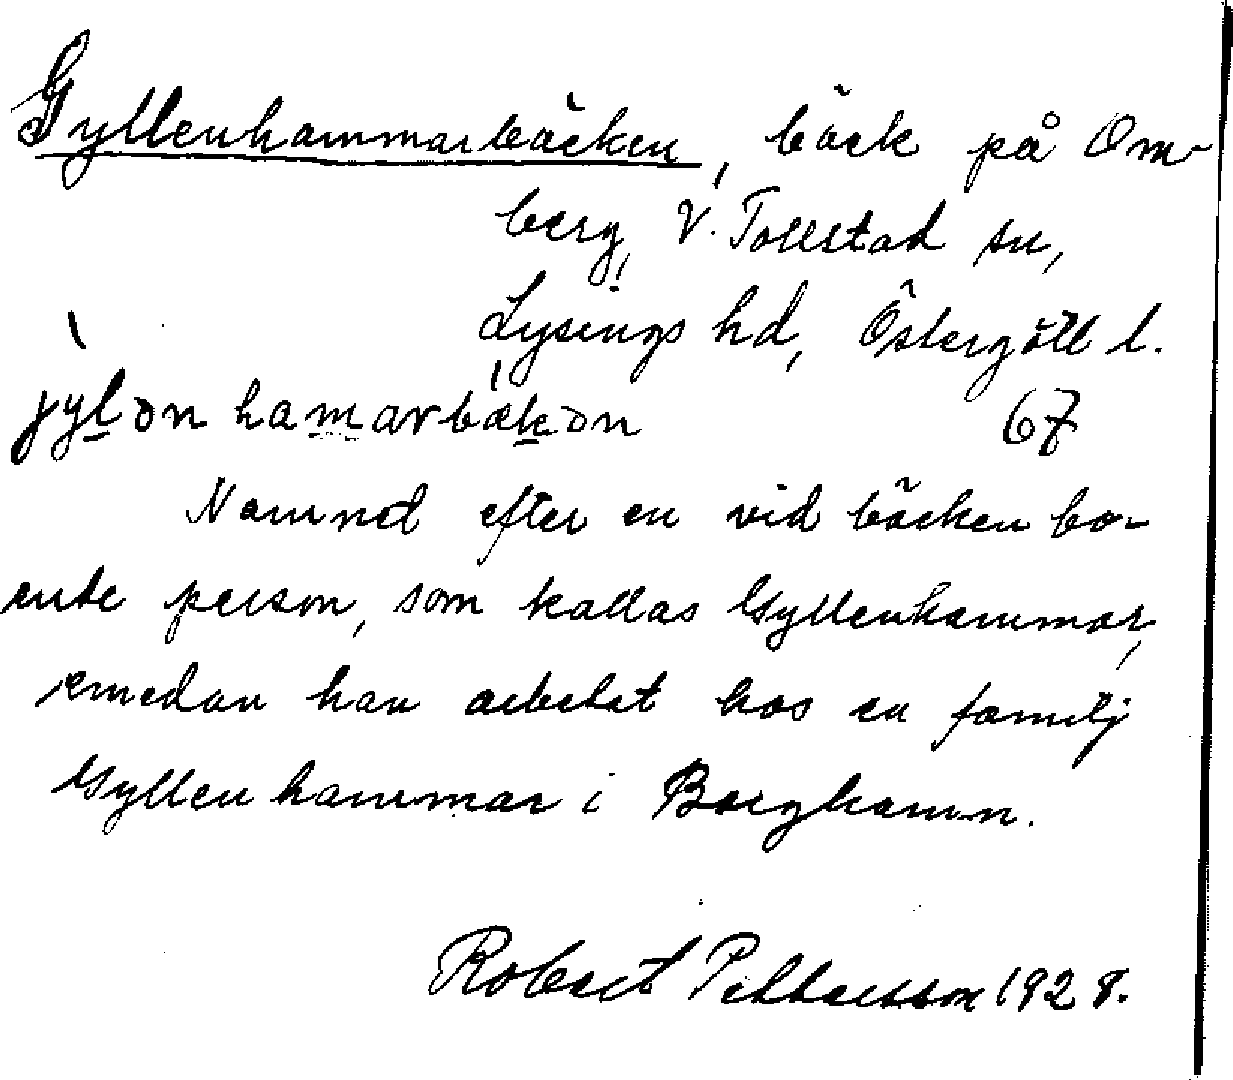 Gyllenhammarbäcken, bäck på Om-
berg, V. Tollstad sn,
Lysings hd, Östergötl l.
jylən hamarbäkən 67
Namnd efter en vid bäcken bo-
ende person, som kallas Gyllenhammar,
emedan han arbetat hos en familj
Gyllenhammar i Borghamn.
Robert Pettersson 1928.